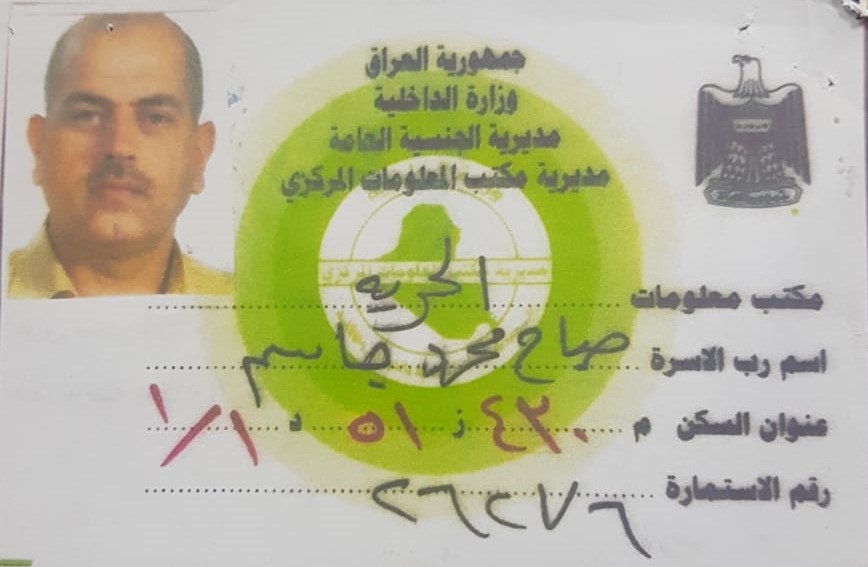 جمهورية العراق
وزارة الداخلية
مديرية الجنسية العامة
مديرية مكتب المعلومات المركزي
مكتب معلومات الحرية
اسم رب الاسرة صباح محمد جاسم
عنوان السكن م ٤٢٠ ز ٥١ د ١/٨١
رقم الاستمارة